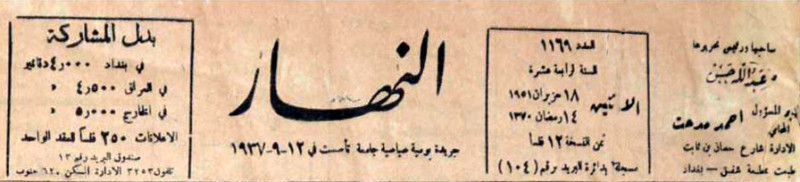 صاحبها ورئيس تحريرها
عبدالله حسن
المدير المسؤول
المحامي احمد مدحت
الادارة شارع حسان بن ثابت
طبعت بمطبعة شفيق - بغداد
العدد ١١٦٩
السنة الرابعة عشرة
الاثنين
١٨ حزيران ١٩٥١
١٤ رمضان ١٣٧٠
ثمن النسخة ١٢ فلساً
مسجلة بدائرة البريد برقم (١٠٤)
النهار
جريدة يومية سياسية جامعة تأسست في ١٢-٩-١٩٣٧
بدل المشاركة
في بغداد ٤٫٠٠٠ دنانير
في العراق ٤٫٥٠٠ »
في الخارج ٥٫٠٠٠ »
الاعلانات ٢٥٠ فلساً للعقد الواحد
صندوق البريد رقم ١٣
تلفون ٣٢٥٣ الادارة السكن ٦٢٠ جنوب